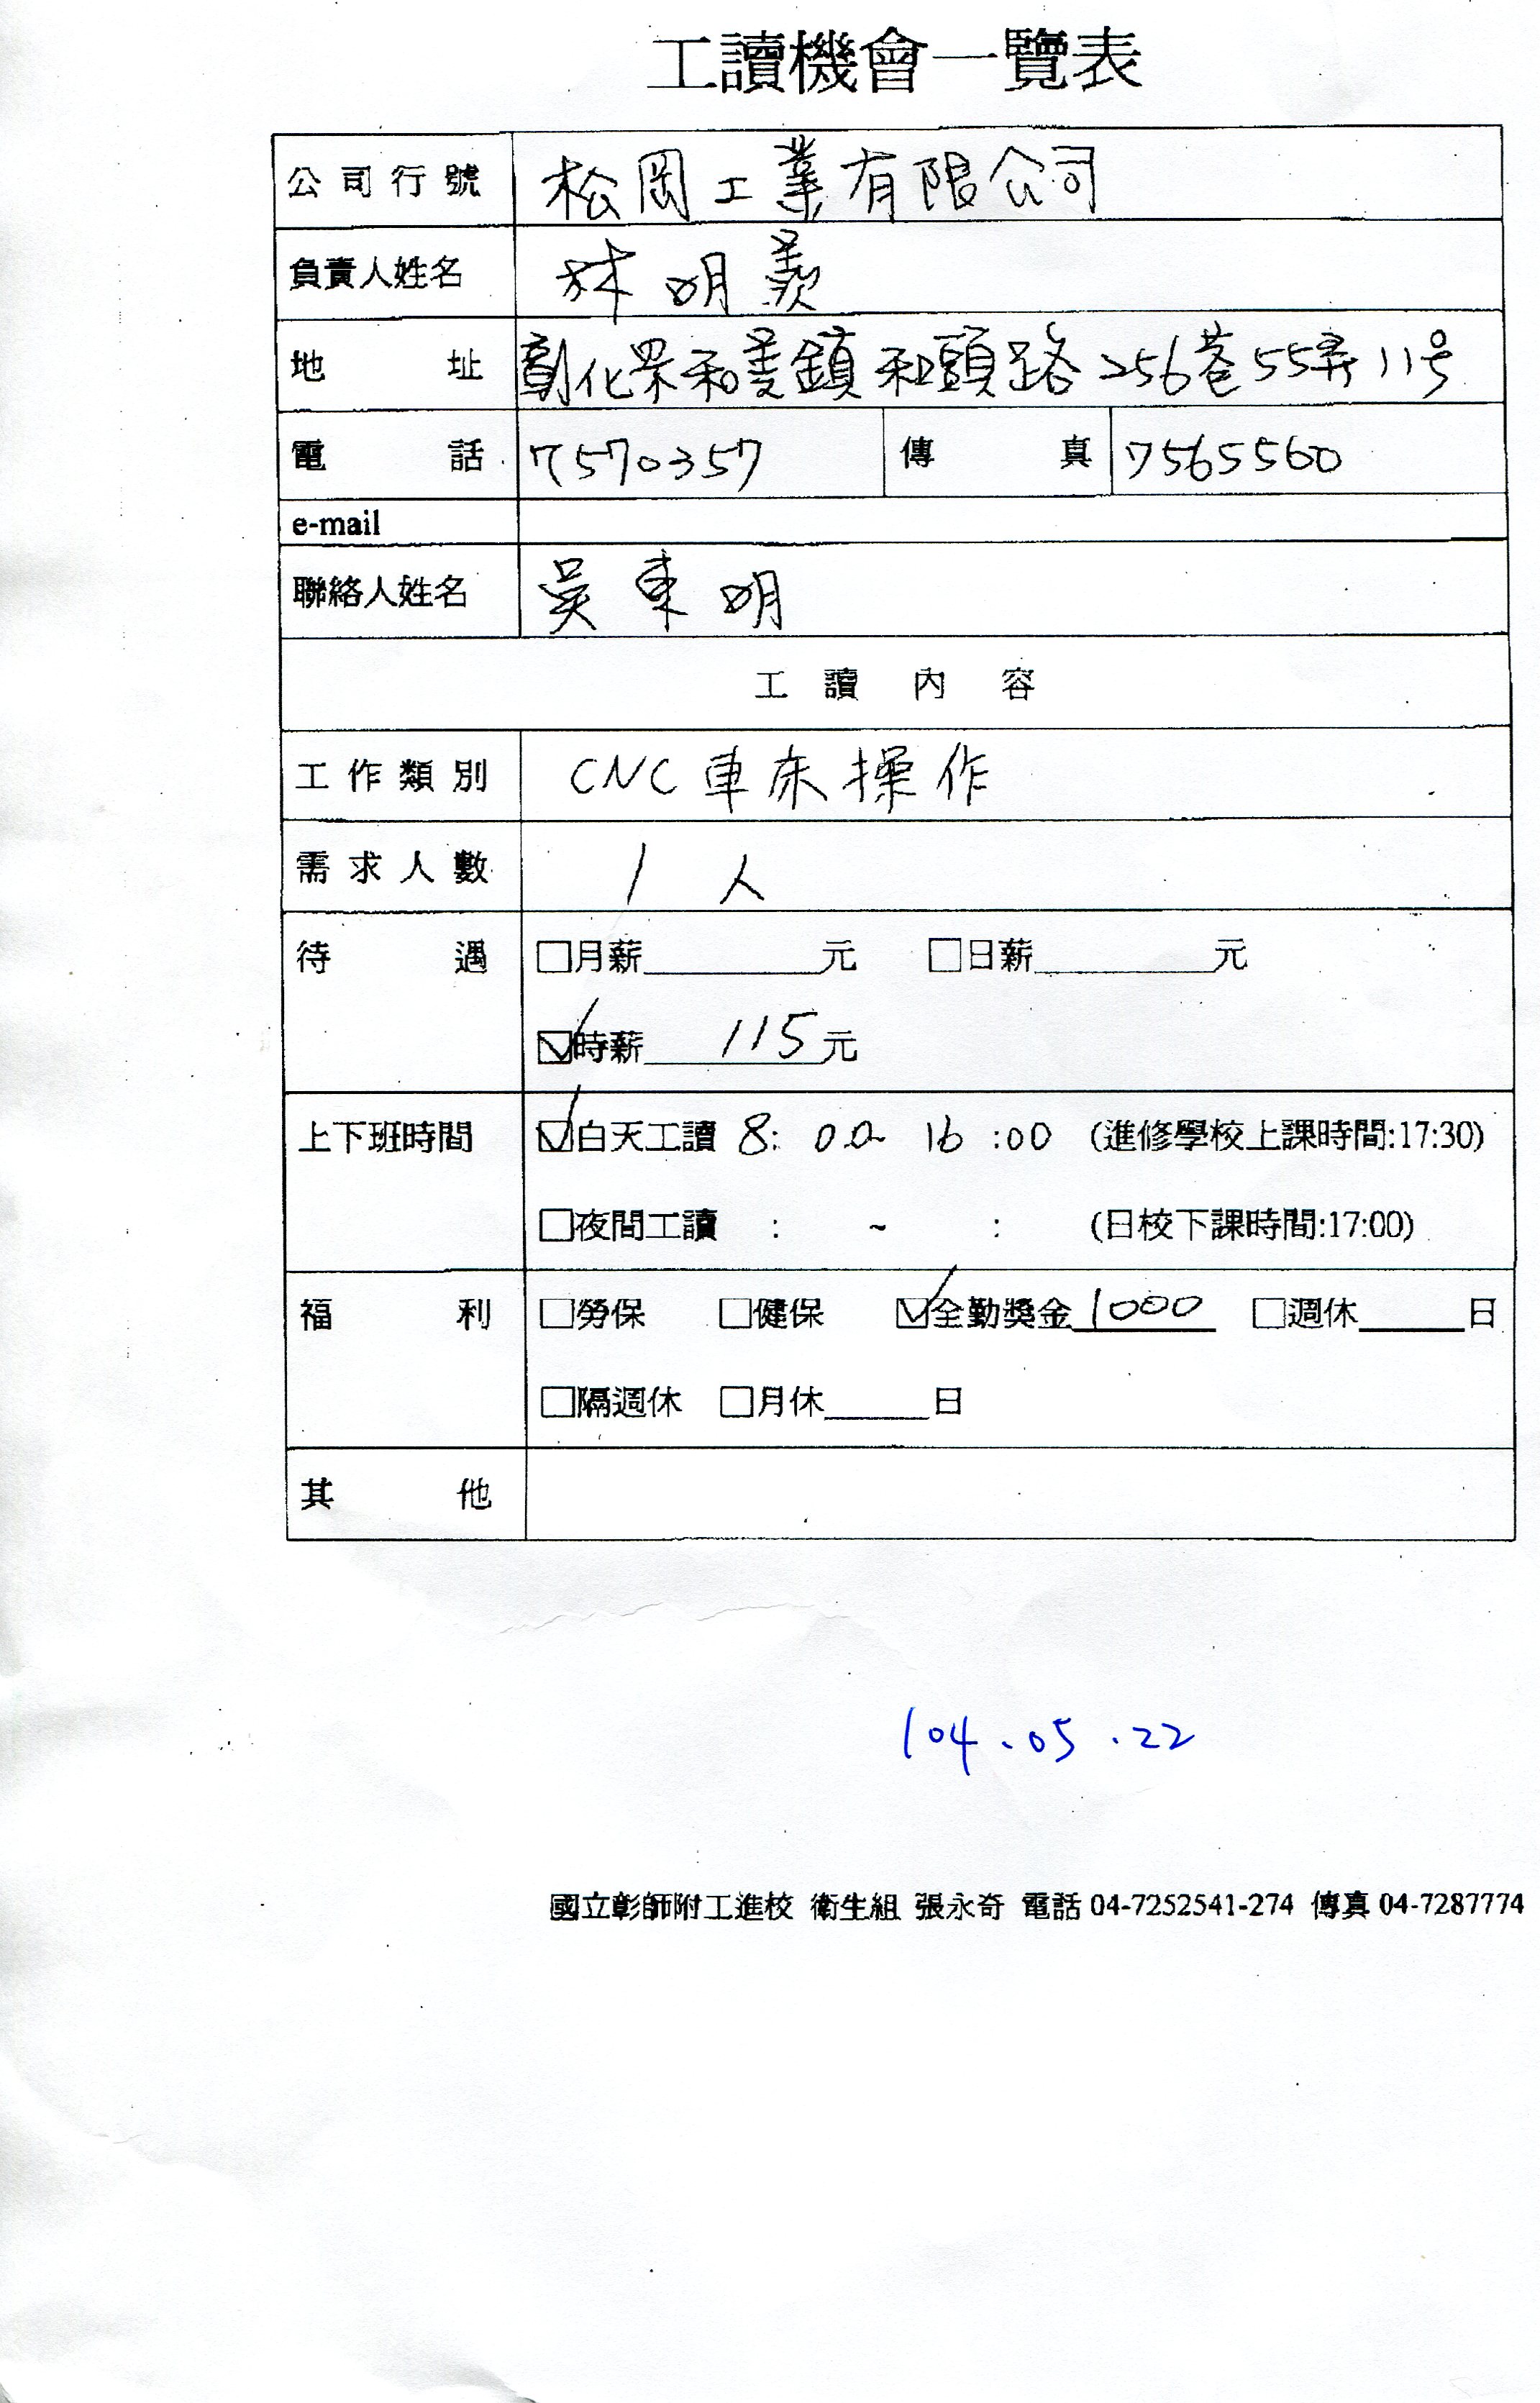 工讀機會一覽表
公司行號 松岡工業有限公司
負責人姓名 林明義
地址 彰化縣和美鎮和頭路256巷55弄11号
電話 7570357 傳真 7565560
e-mail
聯絡人姓名 吳東明
工讀內容
工作類別 CNC車床操作
需求人數 1人
待遇 □月薪______元 □日薪______元
☑時薪 115元
上下班時間 ☑白天工讀 8:00~16:00 (進修學校上課時間:17:30)
□夜間工讀 : ~ : (日校下課時間:17:00)
福利 □勞保 □健保 ☑全勤獎金1000 □週休____日
□隔週休 □月休____日
其他
104.05.22
國立彰師附工進校 衛生組 張永奇 電話 04-7252541-274 傳真 04-7287774